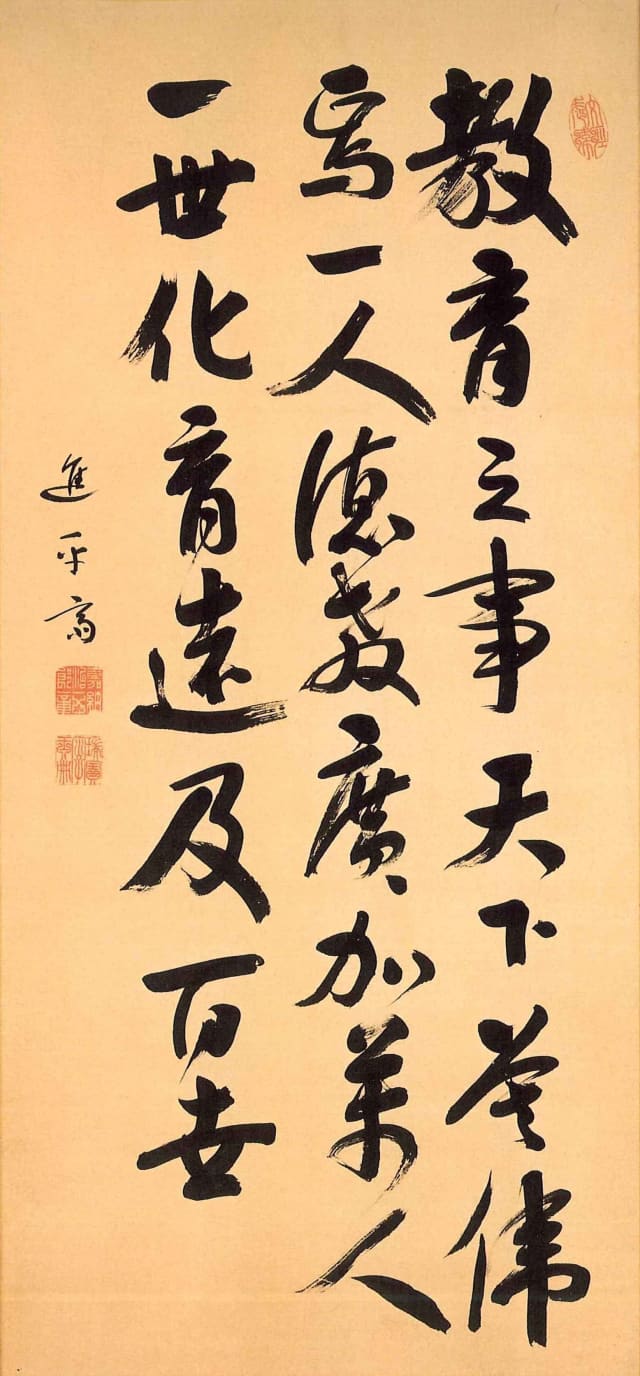 教育之事天下莫偉
焉一人徳教廣加萬人
一世化育遠及百世
進乎齋